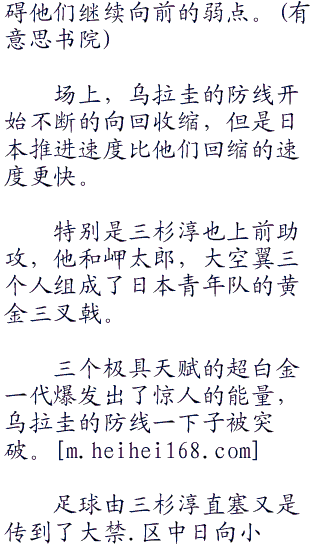 碍他们继续向前的弱点。(有
意思书院)
场上，乌拉圭的防线开
始不断的向回收缩，但是日
本推进速度比他们回缩的速
度更快。
特别是三杉淳也上前助
攻，他和岬太郎，大空翼三
个人组成了日本青年队的黄
金三叉戟。
三个极具天赋的超白金
一代爆发出了惊人的能量，
乌拉圭的防线一下子被突
破。[m.heihei168.com]
足球由三杉淳直塞又是
传到了大禁.区中日向小